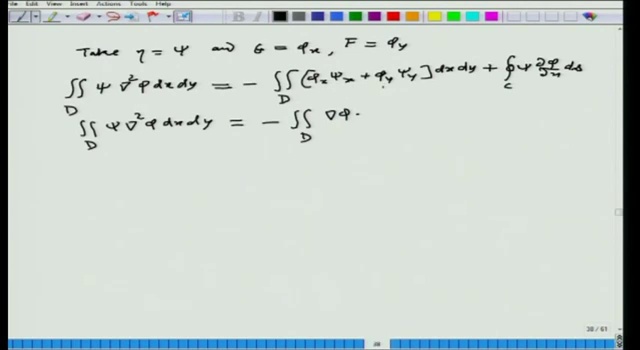 Edit View Insert Actions Tools Help
Take η = Ψ and G = φₓ, F = φᵧ
∬_D Ψ ∇²φ dx dy = - ∬_D [φₓ Ψₓ + φᵧ Ψᵧ] dx dy + ∮_C Ψ ∂φ/∂n ds
∬_D Ψ ∇²φ dx dy = - ∬_D ∇φ.
38 / 61
38